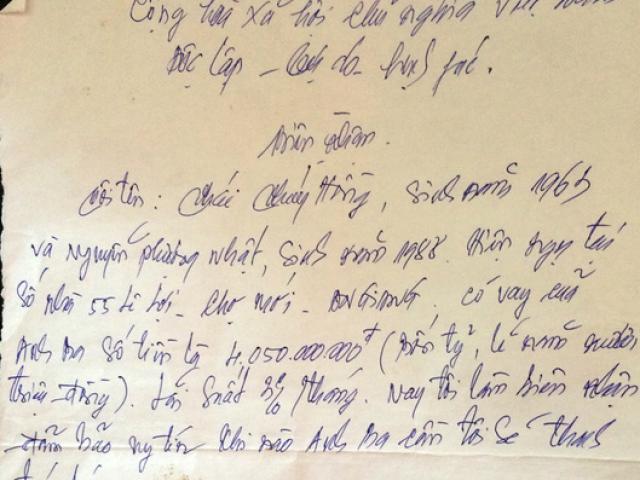 Cộng hòa xã hội chủ nghĩa Việt Nam
Độc lập - Tự do - hạnh phúc.
Biên nhận.
Tôi tên: Thái Thúy Hồng, sinh năm 1963
và Nguyễn phương nhật, sinh năm 1983 Hiện ngụ tại
Số nhà 55 Lê Lợi - Chợ mới - AN GIANG. có vay của
Anh Ba Số tiền là 4.050.000.000đ (Bốn tỷ, lẻ năm mươi
triệu đồng). Lãi suất 3% tháng. Nay tôi làm biên nhận
đảm bảo uy tín khi nào Anh Ba cần tôi sẽ thanh